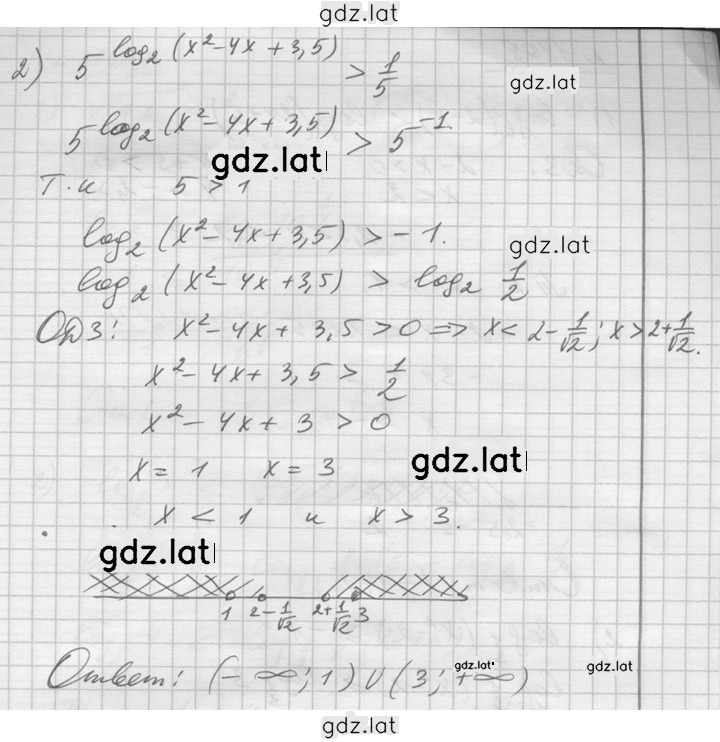 gdz.lat
2) 5^{log₂(x²-4x+3,5)} > 1/5
gdz.lat
5^{log₂(x²-4x+3,5)} > 5^{-1}.
gdz.lat
Т.к 5 > 1
log₂(x²-4x+3,5) > -1.
gdz.lat
log₂(x²-4x+3,5) > log₂ 1/2
ОДЗ: x²-4x+3,5 > 0 => x < 2-1/√2; x > 2+1/√2.
x²-4x+3,5 > 1/2
x²-4x+3 > 0
x = 1 x = 3
gdz.lat
x < 1 и x > 3.
gdz.lat
1 2-1/√2 2+1/√2 3
Ответ: (-∞;1)∪(3;+∞)
gdz.lat
gdz.lat
gdz.lat